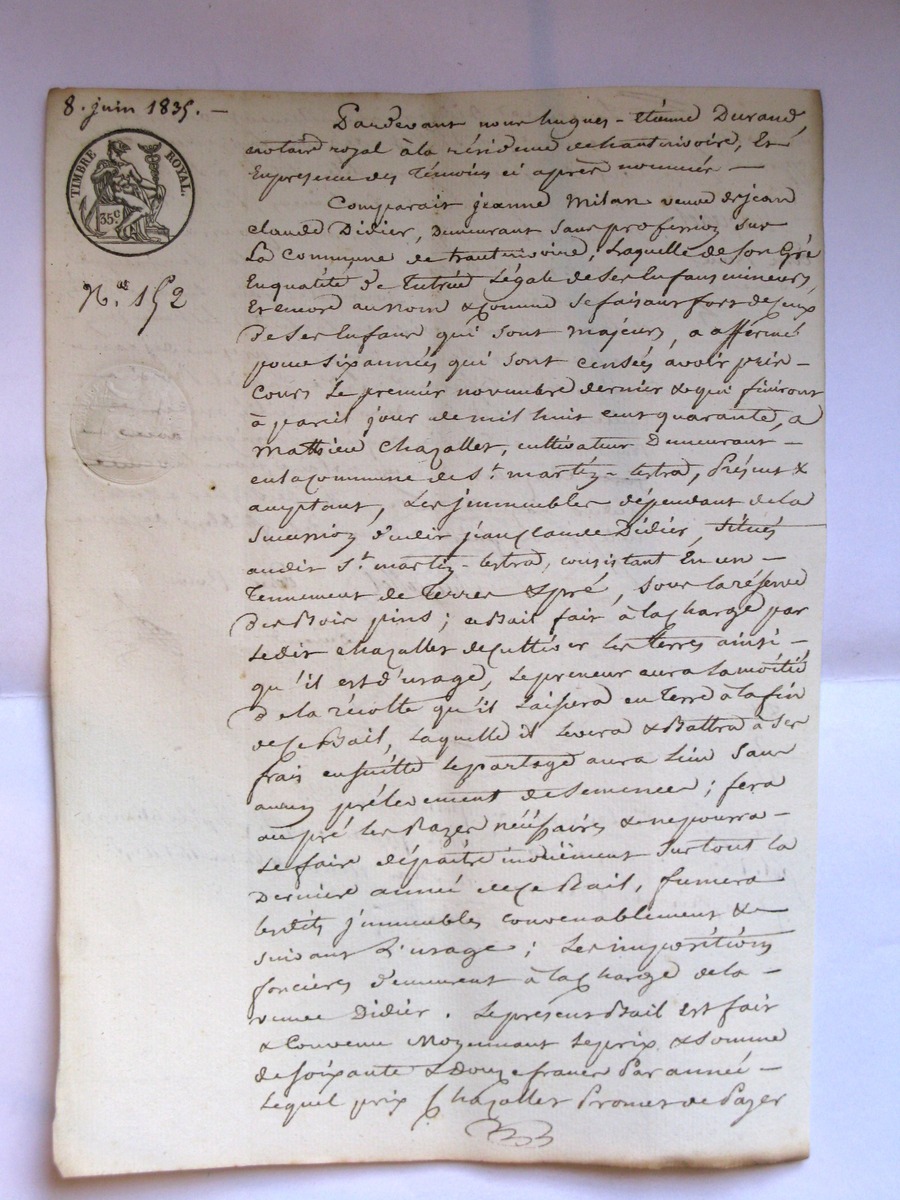 8. juin 1835. —
TIMBRE ROYAL.
35c.
Nos 152
Pardevant nous hugues-étienne Durand,
notaire royal à la résidence de chantrivoire, Et
En presence des Témoins ci après nommés —
Comparait jeanne Milan veuve de jean
claude Didier, Demeurant sans profession sur
La Commune de , Laquelle de son Gré
En qualité de Tutrice Légale de Ses Enfans mineurs,
Et encore au nom & Comme Se faisant fort de ceux
de Ses Enfans qui sont majeurs, a affermé
pour six années qui sont censées avoir pris —
Cours Le premier novembre dernier & qui finiront
à pareil jour de mil huit cent quarante, a
Mathieu Chazallet, cultivateur Demeurant —
en la commune de St. martin-lestra, Présent &
acceptant, Les jmmeubles dépendant de la
Succession dudit jean Claude Didier, Situés
audit St. martin-lestra, consistant En un —
Tennement de Terres & pré, sous la réserve
Des Bois pins; ce Bail fait à la Charge par
Ledit Chazallet de Cultiver Les terres ainsi —
qu'il est d'usage, Le preneur aura La moitié
De la récolte qu'il Laissera en Terre à la fin
de Ce Bail, Laquelle il Levera & Battra à Ses
frais ensuitte Le partage aura Lieu Sans
aucun prélevement de Semences; fera
au pré Les Razes nécéssaires & ne pourra —
Le faire dépaitre surtout la
Derniere année de Ce Bail, fumera
lesdits jmmeubles convenablement &
suivant L'usage; Les impositions
foncières demeurent à la Charge de la —
veuve Didier. Le present Bail est fait
& Convenu Moyennant Le prix & Somme
de Soixante & Douze francs Par année —
Lequel prix Chazallet Promet de Payer